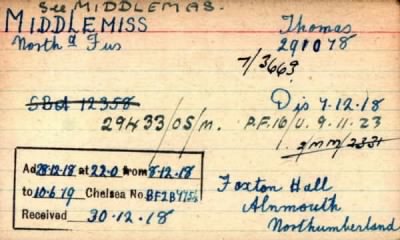 See MIDDLEMAS.
MIDDLEMISS Thomas
North'd Fus 291078
7/3663
SBd 12358 Dis 7.12.18
29433/OS/M. P.F.16/U. 9.11.23
1. 2/MM/2331
Ad 28-12-18 at 22.0 from 8-12-18
to 10.6.19 Chelsea No.
Received 30.12.18
Foxton Hall
Alnmouth
Northumberland